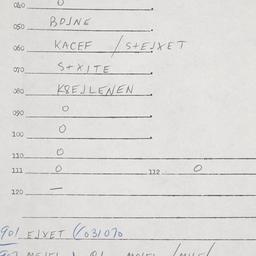 040 0
050 BOJNE
060 KACEF / S+EJXET
070 S+XITE
080 K8EJLENEN
090 0
100 0
110 0
111 0 112 0
120 —
901 EJXET (031070